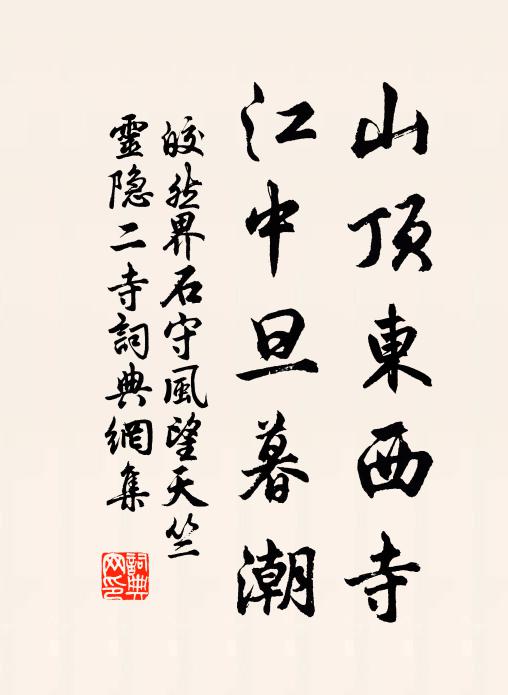 山顶東西寺
江中旦暮潮
皎然界石守風望天竺
靈隐二寺詞典網集
詞典網印